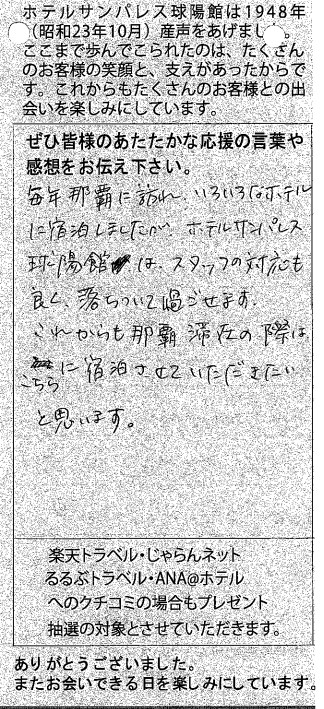 ホテルサンパレス球陽館は1948年
（昭和23年10月）産声をあげました。
ここまで歩んでこられたのは、たくさん
のお客様の笑顔と、支えがあったからで
す。これからもたくさんのお客様との出
会いを楽しみにしています。
ぜひ皆様のあたたかな応援の言葉や
感想をお伝え下さい。
毎年那覇に訪れ、いろいろなホテル
に宿泊しましたが、ホテルサンパレス
球陽館は、スタッフの対応も
良く、落ちついて過ごせます。
これからも那覇滞在の際は
こちらに宿泊させていただきたい
と思います。
楽天トラベル・じゃらんネット
るるぶトラベル・ANA@ホテル
へのクチコミの場合もプレゼント
抽選の対象とさせていただきます。
ありがとうございました。
またお会いできる日を楽しみにしています。